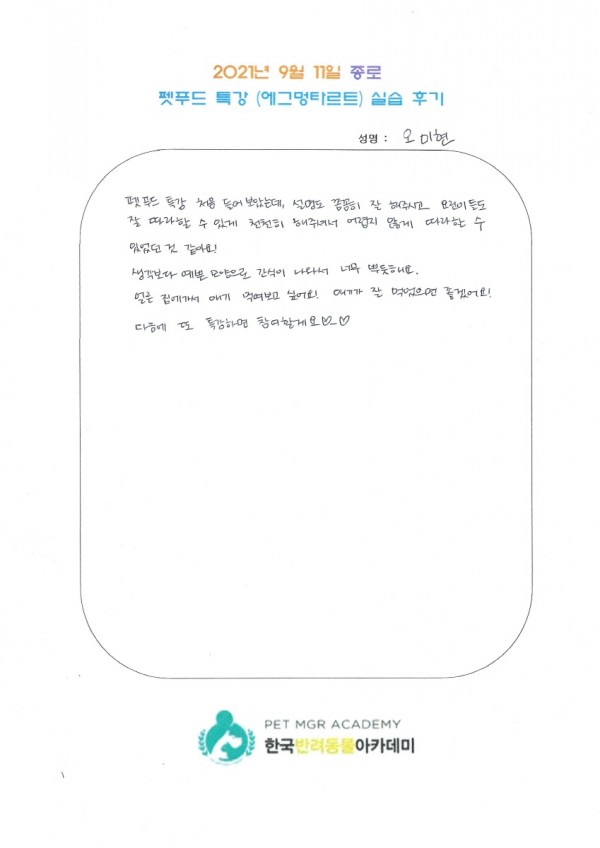 2021년 9월 11일 종로
펫푸드 특강 (에그멍타르트) 실습 후기
성명 : 오미현
펫푸드 특강 처음 들어보았는데, 설명도 꼼꼼히 잘 해주시고 요린이들도
잘 따라할 수 있게 천천히 해주셔서 어렵지 않게 따라할 수
있었던 것 같아요!
생각보다 예쁜 모양으로 간식이 나와서 너무 뿌듯해요.
얼른 집에가서 애기 먹여보고 싶어요! 애기가 잘 먹었으면 좋겠어요!
다음에 또 특강하면 참여할게요♡~♡
PET MGR ACADEMY
한국반려동물아카데미